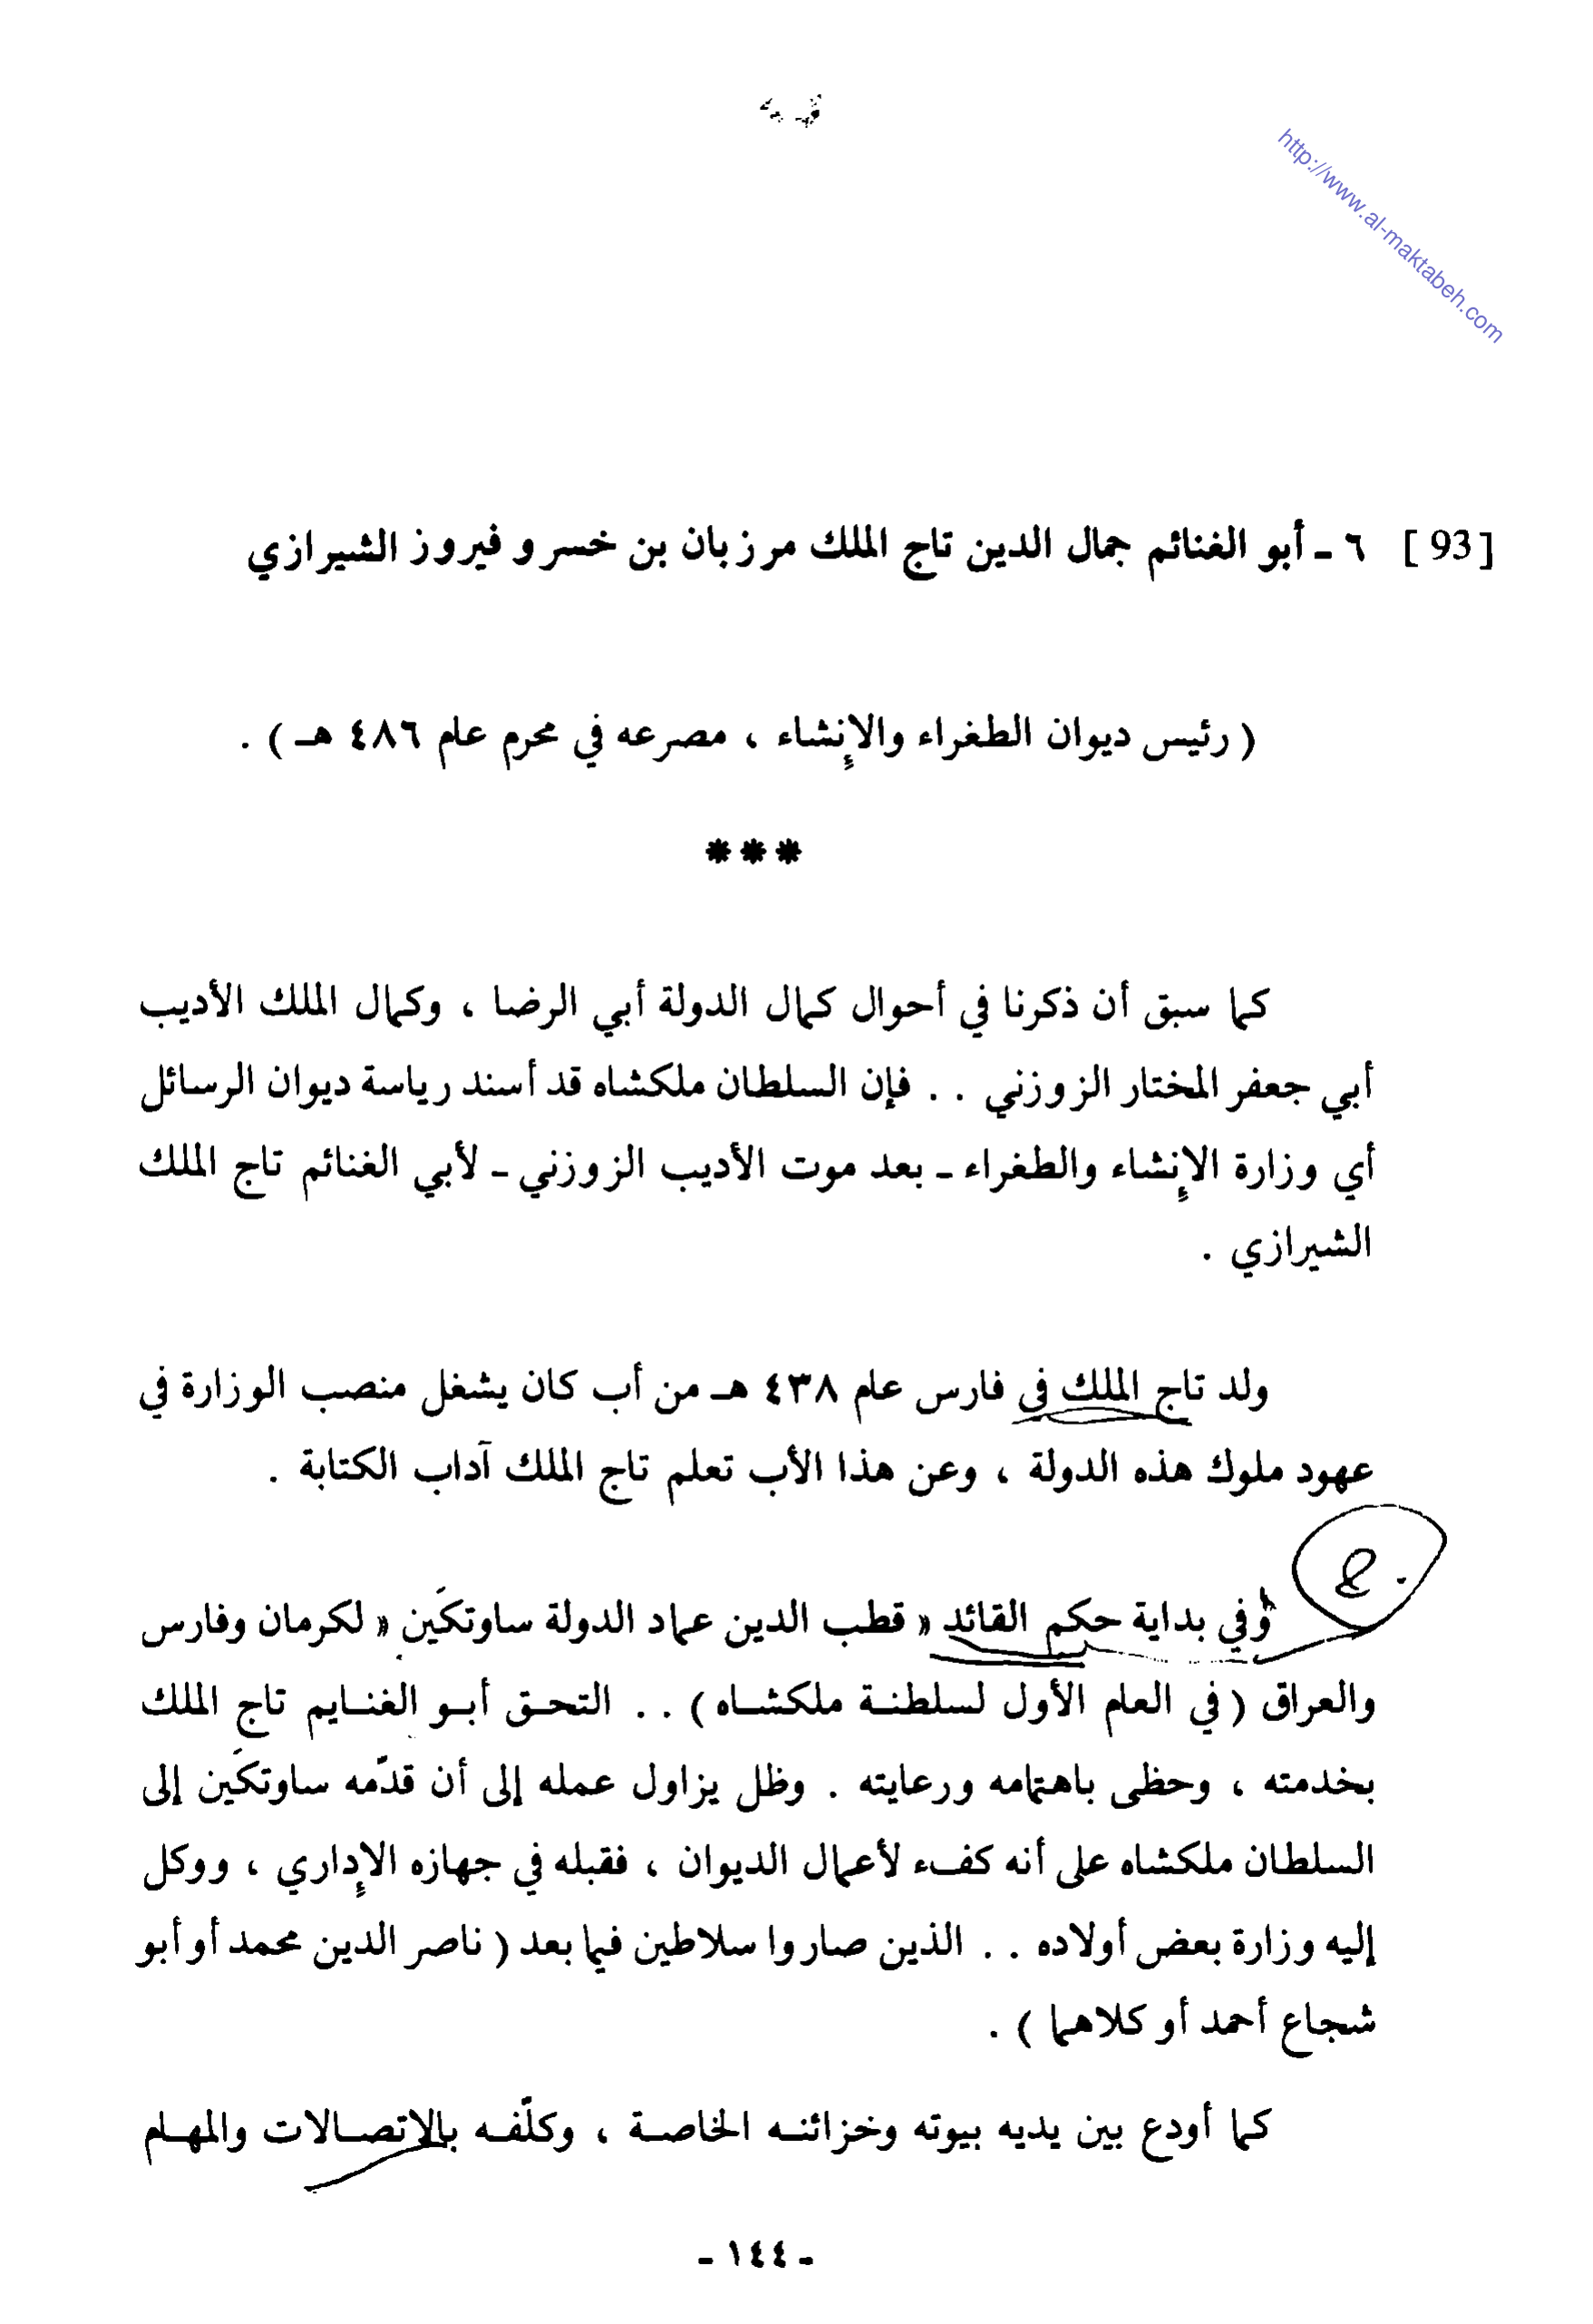 http://www.al-maktabeh.com
[93] ٦ ـ أبو الغنائم جمال الدين تاج الملك مرزبان بن خسرو فيروز الشيرازي
( رئيس ديوان الطغراء والإنشاء ، مصرعه في محرم عام ٤٨٦ هـ ) .
***
كما سبق أن ذكرنا في أحوال كمال الدولة أبي الرضا ، وكمال الملك الأديب
أبي جعفر المختار الزوزني . . فإن السلطان ملكشاه قد أسند رياسة ديوان الرسائل
أي وزارة الإنشاء والطغراء ـ بعد موت الأديب الزوزني ـ لأبي الغنائم تاج الملك
الشيرازي .
ولد تاج الملك في فارس عام ٤٣٨ هـ من أب كان يشغل منصب الوزارة في
عهود ملوك هذه الدولة ، وعن هذا الأب تعلم تاج الملك آداب الكتابة .
وفي بداية حكم القائد « قطب الدين عماد الدولة ساوتكَين » لكرمان وفارس
والعراق ( في العام الأول لسلطنة ملكشاه ) . . التحق أبو الغنايم تاج الملك
بخدمته ، وحظى باهتمامه ورعايته . وظل يزاول عمله إلى أن قدّمه ساوتكَين إلى
السلطان ملكشاه على أنه كفء لأعمال الديوان ، فقبله في جهازه الإداري ، ووكل
إليه وزارة بعض أولاده . . الذين صاروا سلاطين فيما بعد ( ناصر الدين محمد أو أبو
شجاع أحمد أو كلاهما ) .
كما أودع بين يديه بيوته وخزائنه الخاصة ، وكلّفه بالاتصالات والمهام
ـ ١٤٤ ـ